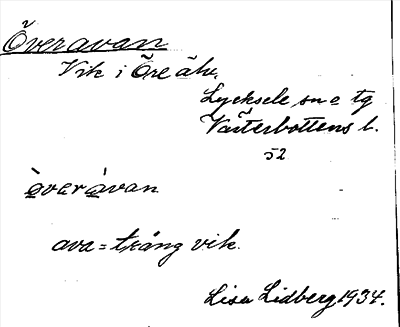 Överavan
Vik i Öre älv.
Lycksele sn o tg
Västerbottens l.
52
òveràvan
ava = trång vik.
Lisa Lidberg 1934.